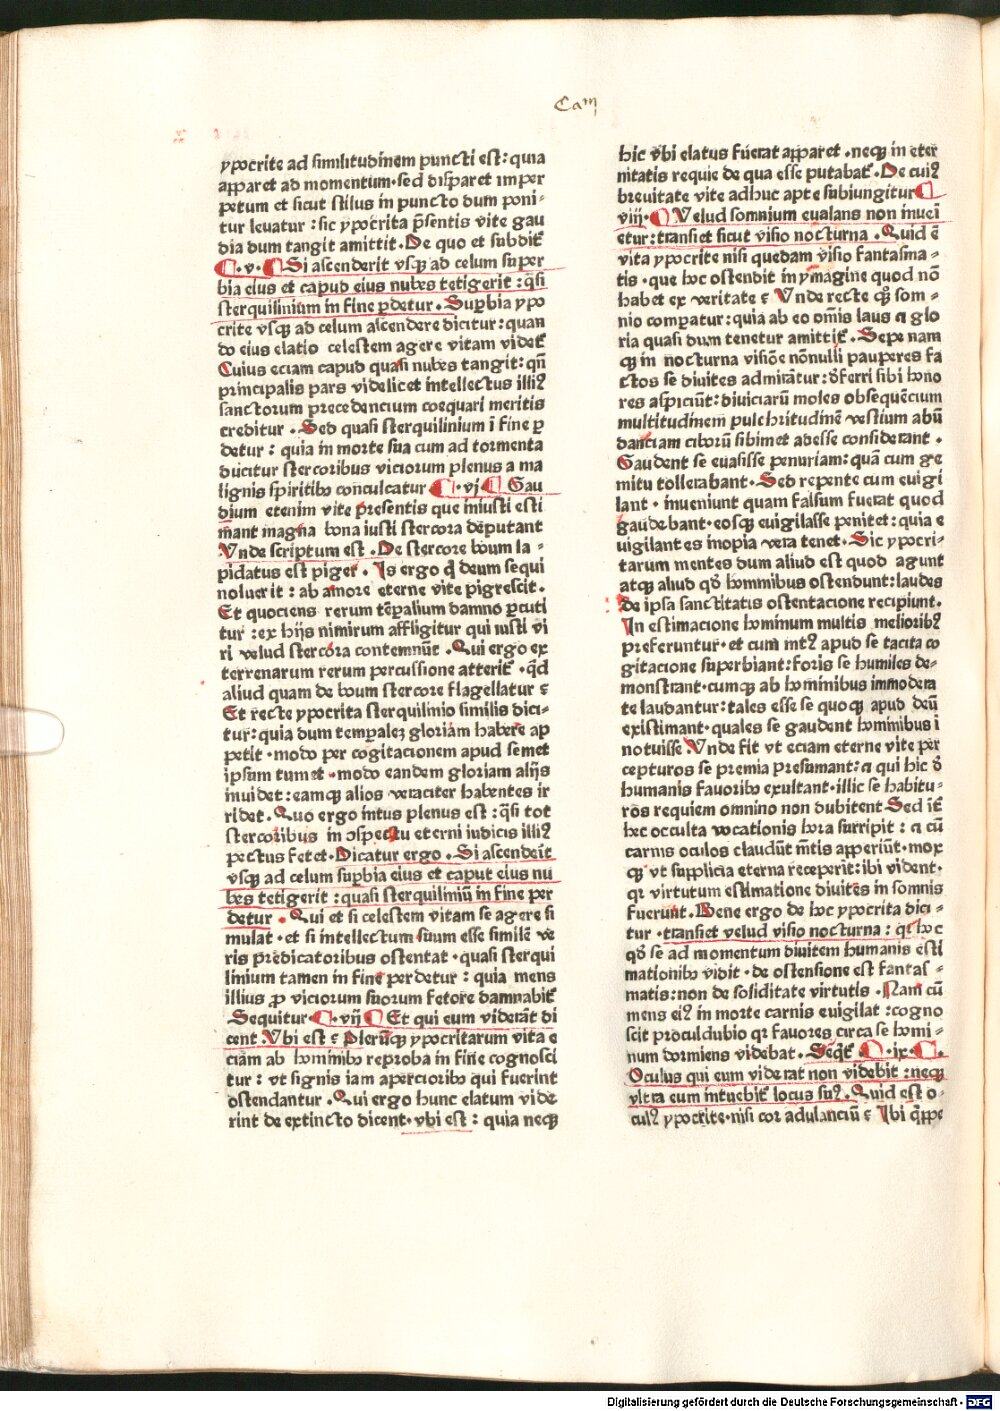 Cam
ypocrite ad similitudinem puncti est: quia
apparet ad momentum·sed disparet imper
petum et sicut stilus in puncto dum poni⸗
tur leuatur :sic ypocrita p̄sentis vite gau
dia dum tangit amittit·De quo et subdit᷑
·v· Si ascenderit vsq̨ ad celum super
bia eius et capud eius nubes tetigerit :q̄si
sterquilinium in fine ꝑdetur. Suꝑbia ypo
crite vsq̨ ad celum ascendere dicitur: quan
do eius elatio celestem agere vitam videt᷑
Cuius eciam capud quasi nubes tangit: qn̄
principalis pars videlicet intellectus illiꝰ
sanctorum precedencium coequari meritis
creditur .Sed quasi sterquilinium ī fine ꝑ
detur: quia in morte sua cum ad tormenta
ducitur stercoribus viciorum plenus a ma
lignis spiritibꝫ conculcatur ·vj Gau
dium etenim vite presentis que iniusti esti
mant magna bona iusti stercora deputant
Vnde scriptum est .De stercore boum la ⸗
pidatus est piger. Is ergo q̄ deum sequi
noluerit : ab amore eterne vite pigrescit.
Et quociens rerum tēꝑalium damno ꝑcuti
tur :ex hijs nimirum affligitur qui iusti vi
ri velud stercora contemnūt .Qui ergo ex
terrenarum rerum percussione atterit᷑ ·qd̄
aliud quam de boum stercore flagellatur ?
Et recte ypocrita sterquilinio similis dici⸗
tur: quia dum temꝑaleꝫ gloriam habere ap
petit ·modo per cogitacionem apud semet
ipsum tumet ·modo eandem gloriam alijs
inuidet: eamq̨ alios veraciter habentes ir
ridet. Quo ergo intus plenus est :q̄si tot
stercoribus in ↄspectu eterni iudicis illiꝰ
pectus fetet·Dicatur ergo .Si ascenderit
vsq̨ ad celum suꝑbia eius et caput eius nu
bes tetigerit :quasi sterquiliniū in fine per
detur . Qui et si celestem vitam se agere si
mulat·et si intellectum suum esse similē ve
ris predicatoribus ostentat ·quasi sterqui
linium tamen in fine perdetur : quia mens
illius ꝓ viciorum suorum fetore damnabit᷑
Sequitur ·vij Et qui eum viderāt di
cent Vbi est ? Plerūq̨ ypocritarum vita e
ciam ab hominibꝫ reproba in fine cognosci
tur: vt signis iam apercioribꝫ qui fuerint
ostendantur .Qui ergo hunc elatum vide
rint de extincto dicent·vbi est : quia neq̨
hic vbi elatus fuerat apparet .neq̨ in eter
nitatis requie de qua esse putabat᷑.De cuiꝰ
breuitate vite adhuc apte subiungitur
viij· Velud somnium euolans non inueī
etur: transiet sicut visio nocturna .Quid ē
vita ypocrite nisi quedam visio fantasma⸗
tis·que hoc ostendit in ymagine quod nō
habet ex veritate ? Vnde recte qꝫ som⸗
nio comꝑatur: quia ab eo om̄is laus ⁊ glo
ria quasi dum tenetur amittit᷑.Sepe nam
q̨ in nocturna visiōe nōnulli pauperes fa
ctos se diuites admirātur: dferri sibi hono
res aspiciūt: diuiciarū moles obsequēcium
multitudinem pulchritudinē vestium abū
danciam ciborū sibimet adesse considerant .
Gaudent se euasisse penuriam: quā cum ge
mitu tollerabant.Sed repente cum euigi
lant · inueniunt quam falsum fuerat quod
gaudebant·eosq̨ euigilasse penitet: quia e
uigilantes inopia vera tenet.Sic ypocri⸗
tarum mentes dum aliud est quod agunt
atq̨ aliud qd̄ hominibus ostendunt: laudes
de ipsa sanctitatis ostentacione recipiunt.
In estimacione hominum multis melioribꝰ
preferuntur·et cum mtꝰ apud se tacita co
gitacione superbiant: foris se humiles de⸗
monstrant·cumq̨ ab hominibus immodera
te laudantur: tales esse se quoq̨ apud deū
existimant·quales se gaudent hominibus ī
notuisse Vnde fit vt eciam eterne vite per
cepturos se premia presumant: ⁊ qui hic d̄
humanis fauoribꝫ exultant·illic se habitu⸗
ros requiem omnino non dubitent Sed īt᷑
hec occulta vocationis hora surripit : ⁊ cū
carnis oculos claudūt mētis apperiūt·mox
q̨ vt supplicia eterna receperit: ibi vident·
qꝛ virtutum estimatione diuites in somnis
fuerūt.Bene ergo de hoc ypocrita dici⸗
tur·transiet velud visio nocturna: qꝛ hoc
qd̄ se ad momentum diuitem humanis esti
mationibꝫ vidit·de ostensione est fantas⸗
matis: non de soliditate virtutis .Nam cū
mens eiꝰ in morte carnis euigilat :cogno
scit proculdubio qꝛ fauores circa se homi⸗
num dormiens videbat.Seqt᷑ ·ix·
Oculus qui eum viderat non videbit :neq̨
vltra eum intuebit᷑ locus suꝰ.Quid est o⸗
culꝰ ypocrite·nisi cor adulanciū ? Ibi q̄ppe
Digitalisierung gefördert durch die Deutsche Forschungsgemeinschaft - DFG